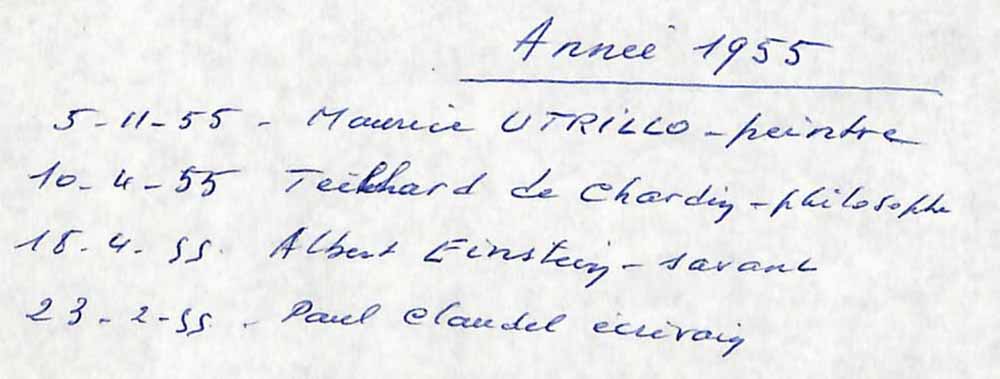 Année 1955
5-11-55 - Maurice UTRILLO - peintre
10-4-55 Teilhard de Chardin - philosophe
18.4.55. Albert Einstein - savant
23-2-55. - Paul Claudel écrivain